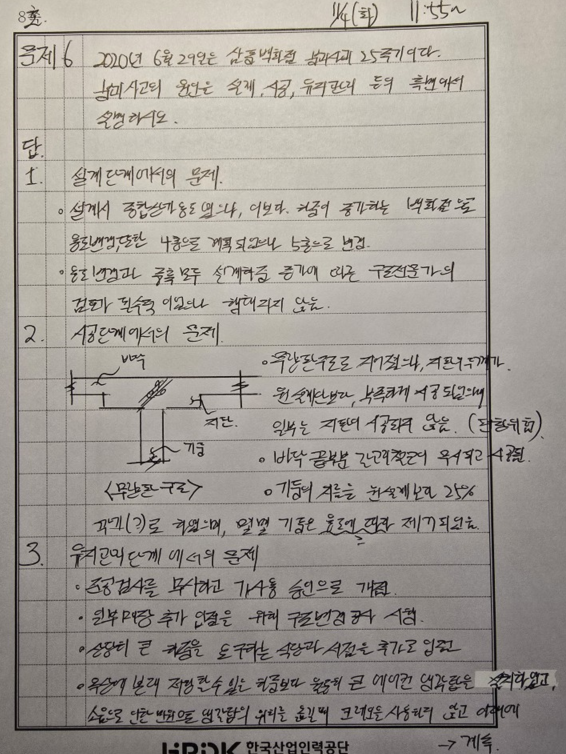 8조. 11/4 (화) 11:55~
문제 6 2020년 6월 29일은 삼풍백화점 붕괴사고 25주기이다.
붕괴사고의 원인은 설계, 시공, 유지관리 등의 측면에서
설명하시오.
답.
1. 설계단계에서의 문제.
설계시 종합상가용도였으나, 이보다 하중이 증가하는 백화점으로
용도변경, 또한 4층으로 계획되었으나 5층으로 변경.
용도변경과 증축 모두 설계하중 증가에 따른 구조전문가의
검토가 필수적이었으나 행해지지 않음.
2. 시공단계에서의 문제.
바닥
지판
기둥
<무량판 구조>
무량판구조로 지어졌으나, 지판의 두께가
원설계안보다 부족하게 시공되었으며
일부는 지판이 시공되지 않음.
바닥 끝부분 시공됨.
기둥의 지름을 원설계보다 25%
(?)로 하였으며, 몇몇 기둥은 제거되었음.
3. 유지관리단계에서의 문제
준공검사를 무시하고 가사용 승인으로 개점.
일부매장 추가 입점을 위해 구조변경 공사 시행.
상당히 큰 하중을 요구하는 식당과 서점을 추가로 입점
옥상에 본래 저항할 수 있는 하중보다 월등히 큰 에어컨 냉각탑을 설치하였고,
소음으로 인한 민원으로 냉각탑의 위치를 옮길때 크레인을 사용하지 않고 아래에
→ 계속
HRDK 한국산업인력공단